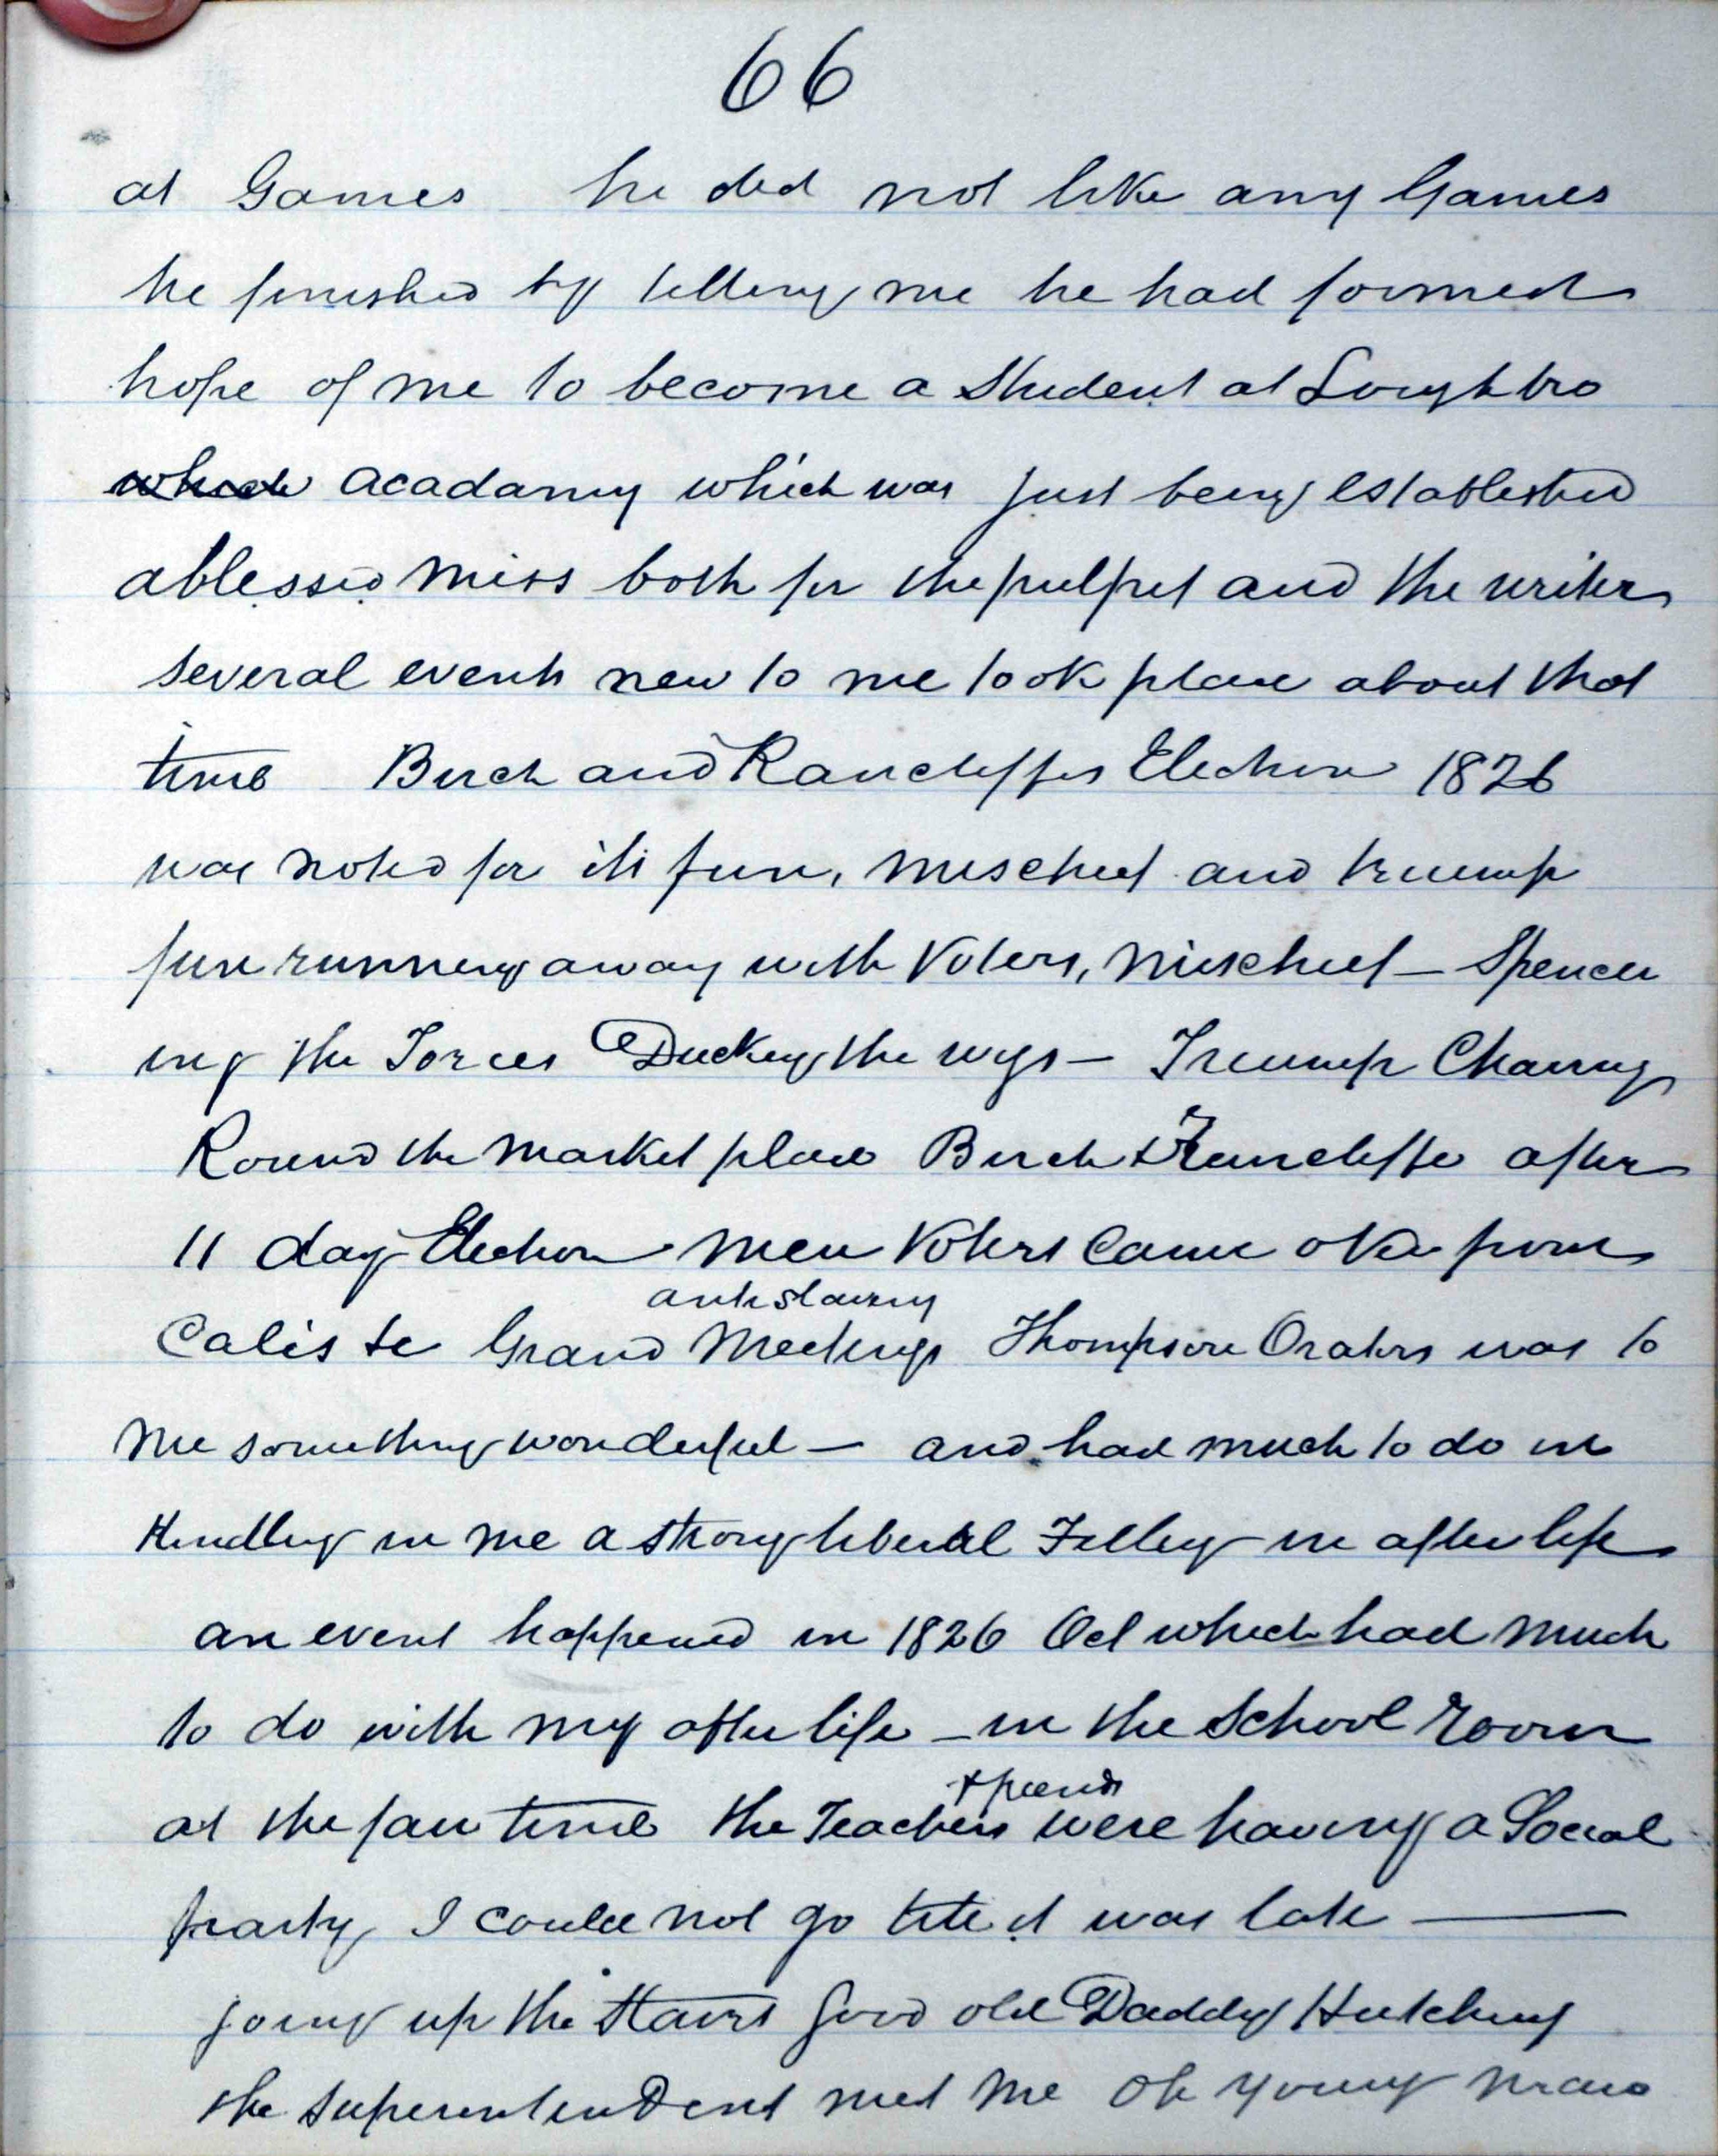 66
at Games he did not like any Games
he finished by telling me he had formed
hope of me to become a Student at Loughbro
which acadamy which was just being established
ablessed miss both for the pulpit and the writer
several events new to me took place about that
time Birch and Rancliffes Election 1826
was noted for its fun, mischief and triump
fun running away with Voters, mischief – Spencer
ing the Tories Ducking the wigs – Triump Chairing
Round the market place Birch & Rancliffe after
11 day Election men Voters Came over from
antislavery
Calis te Grand Meetings Thompson Orators was to
me something wonderful – and had much to do in
Kindling in me a strong liberal Felling in after life
an event happened in 1826 Oct which had much
to do with my after life – in the School room
& friends
at the fair time the Teachers were having a Social
party I could not go till it was late —
going up the Stairs good old Daddy Hutching
the superintendent met me Oh young man